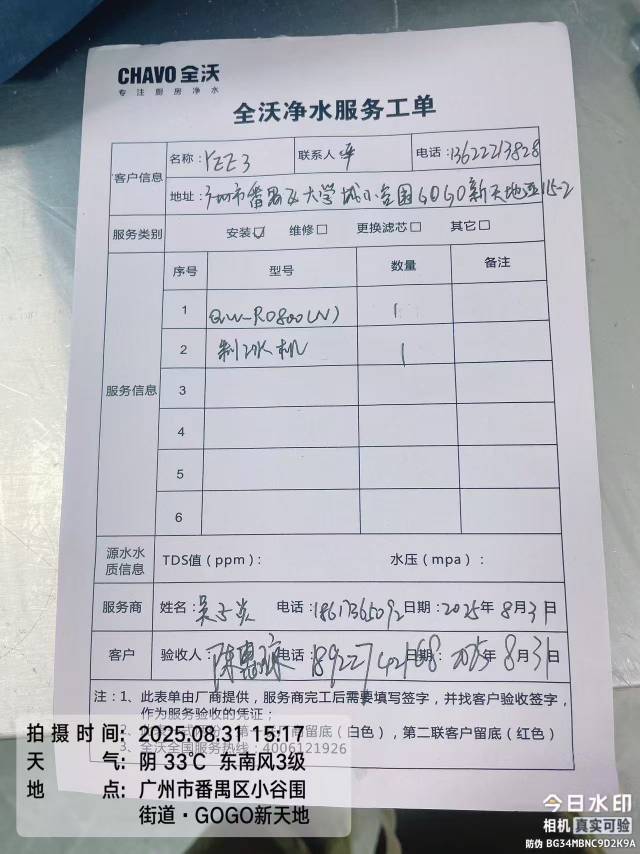 CHAVO 全沃
专注厨房净水
全沃净水服务工单
客户信息
名称：YEE3 联系人 电话：13622213828
地址：广州市番禺区大学城小谷围GOGO新天地 115-2
服务类别 安装☑ 维修□ 更换滤芯□ 其它□
服务信息
序号 型号 数量 备注
1 QW-RO800(N) 1
2 制冰机 1
3
4
5
6
源水水质信息 TDS值（ppm）： 水压（mpa）：
服务商 姓名： 电话：18617365092 日期：2025年8月31日
客户 验收人：陈 电话：18922742168 2025年8月31日
注：1、此表单由厂商提供，服务商完工后需要填写签字，并找客户验收签字，
作为服务验收的凭证；
第一 留底（白色），第二联客户留底（红色）
3、全沃全国服务热线：4006121926
拍摄时间：2025.08.31 15:17
天气：阴 33℃ 东南风3级
地点：广州市番禺区小谷围
街道·GOGO新天地
今日水印
相机 真实可验
防伪 BG34MBNC9D2K9A